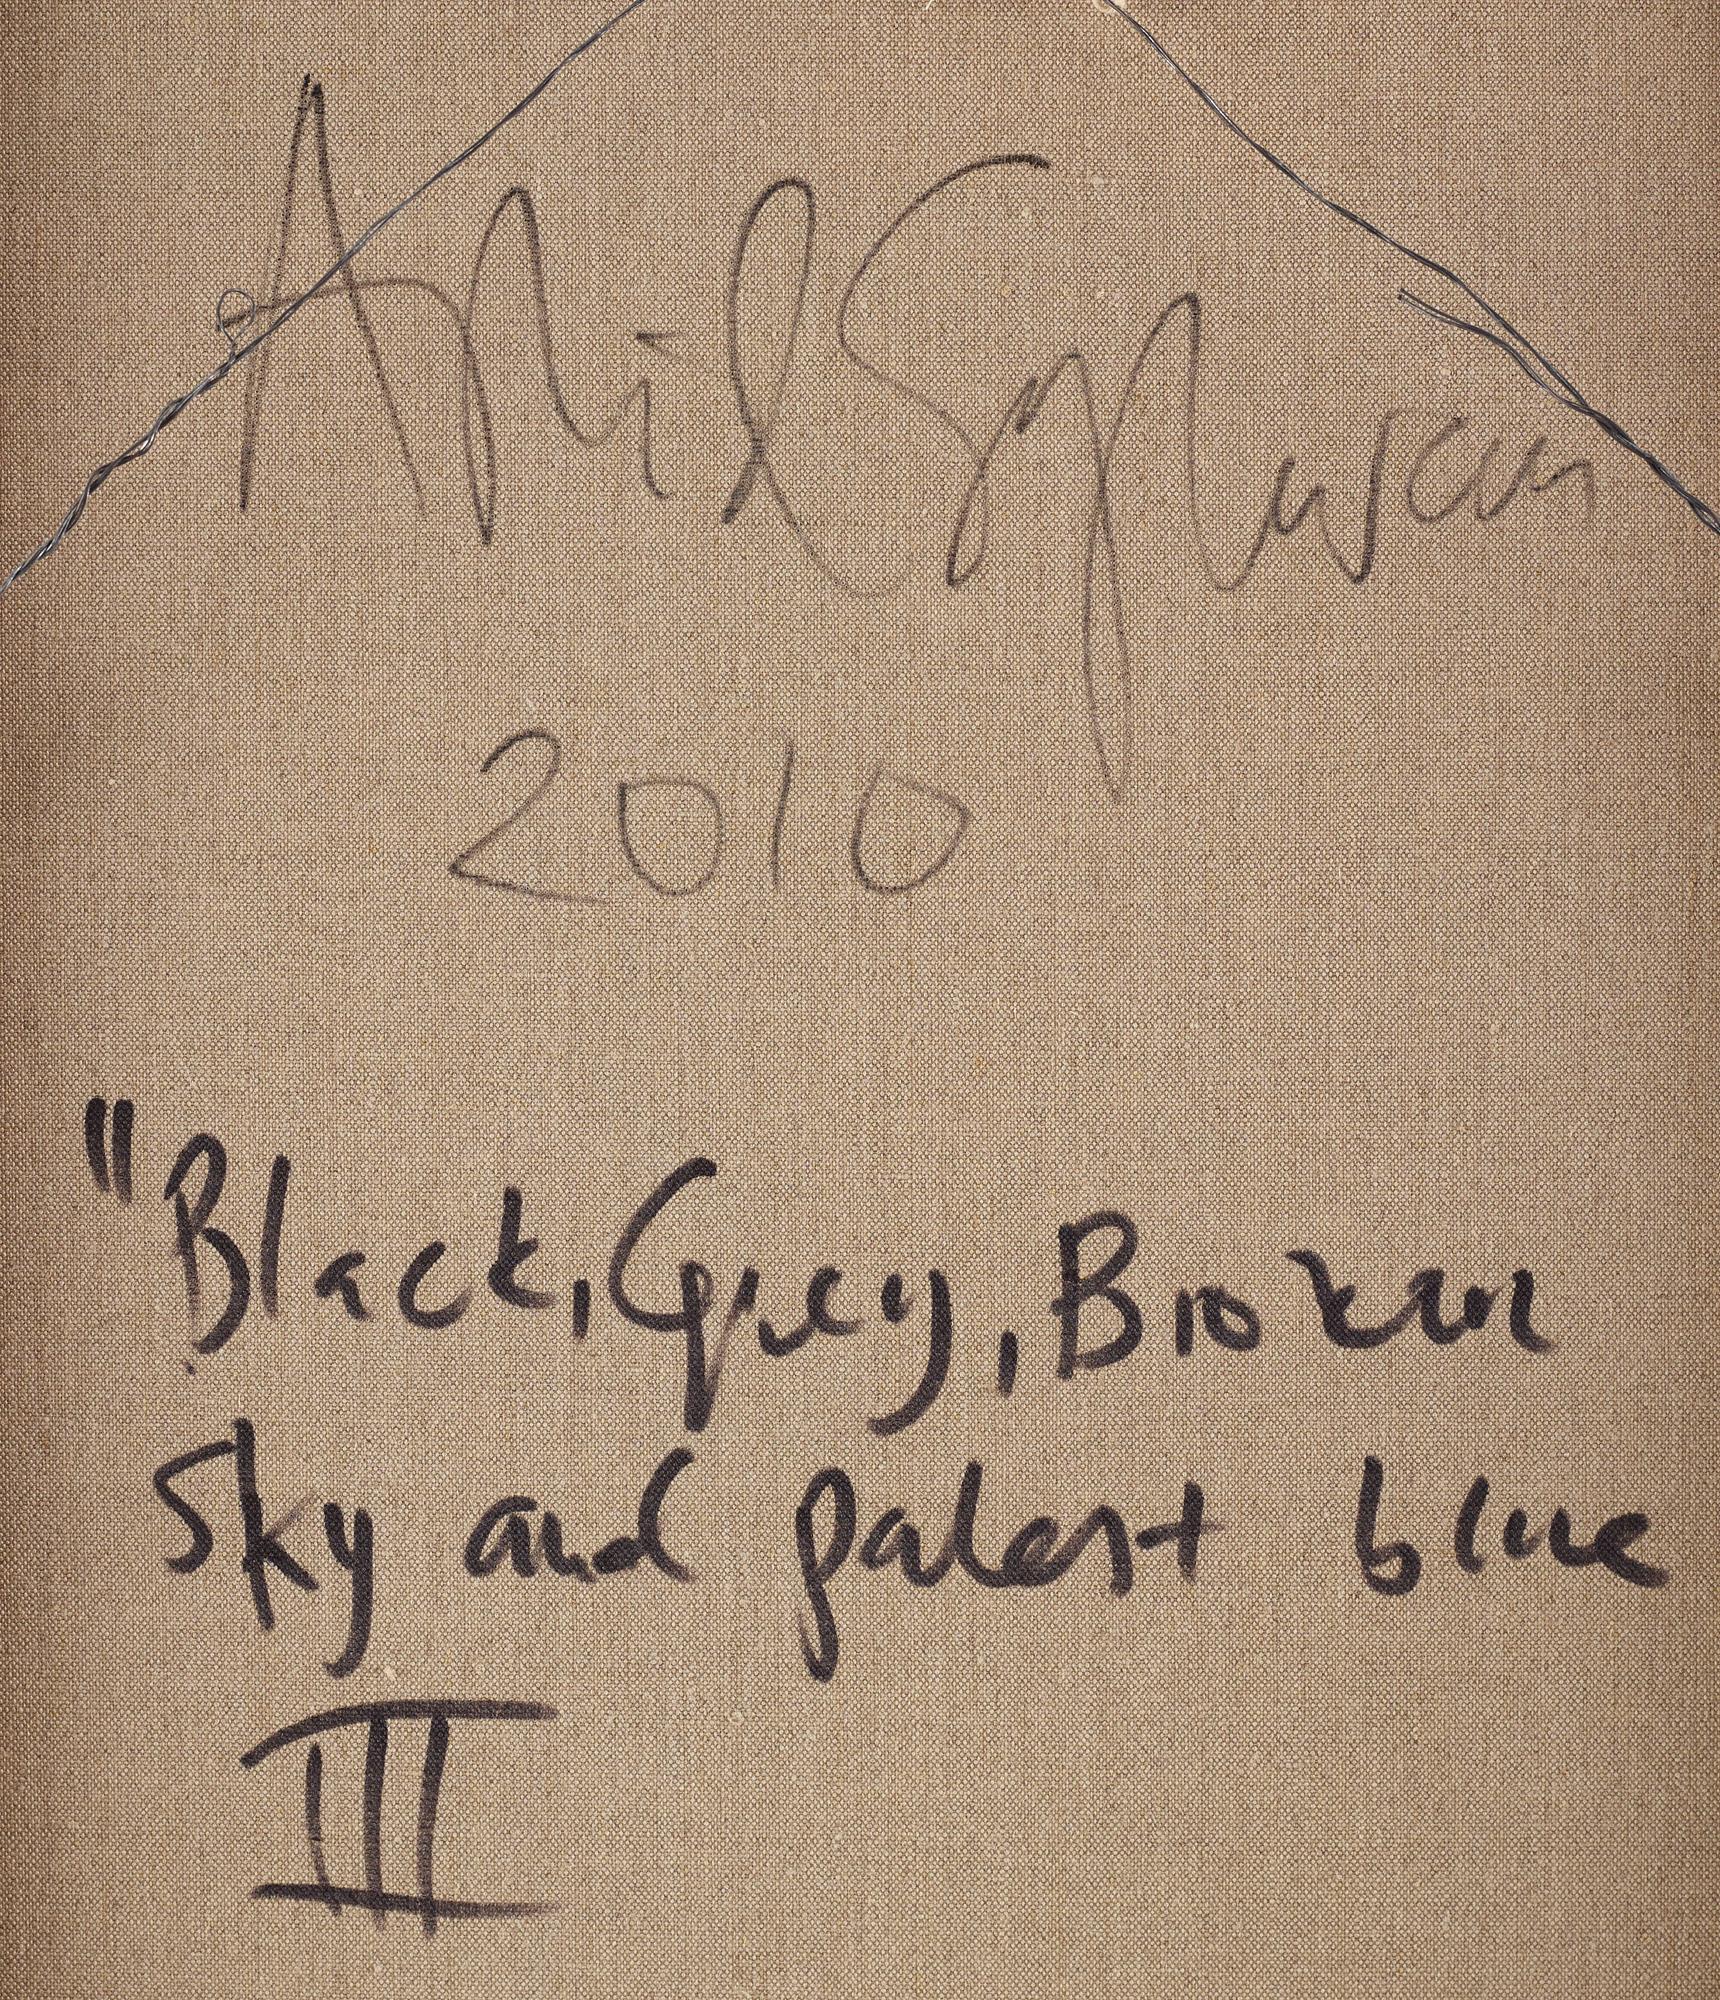 2010
"Black, Grey, Broken
Sky and palest blue
III